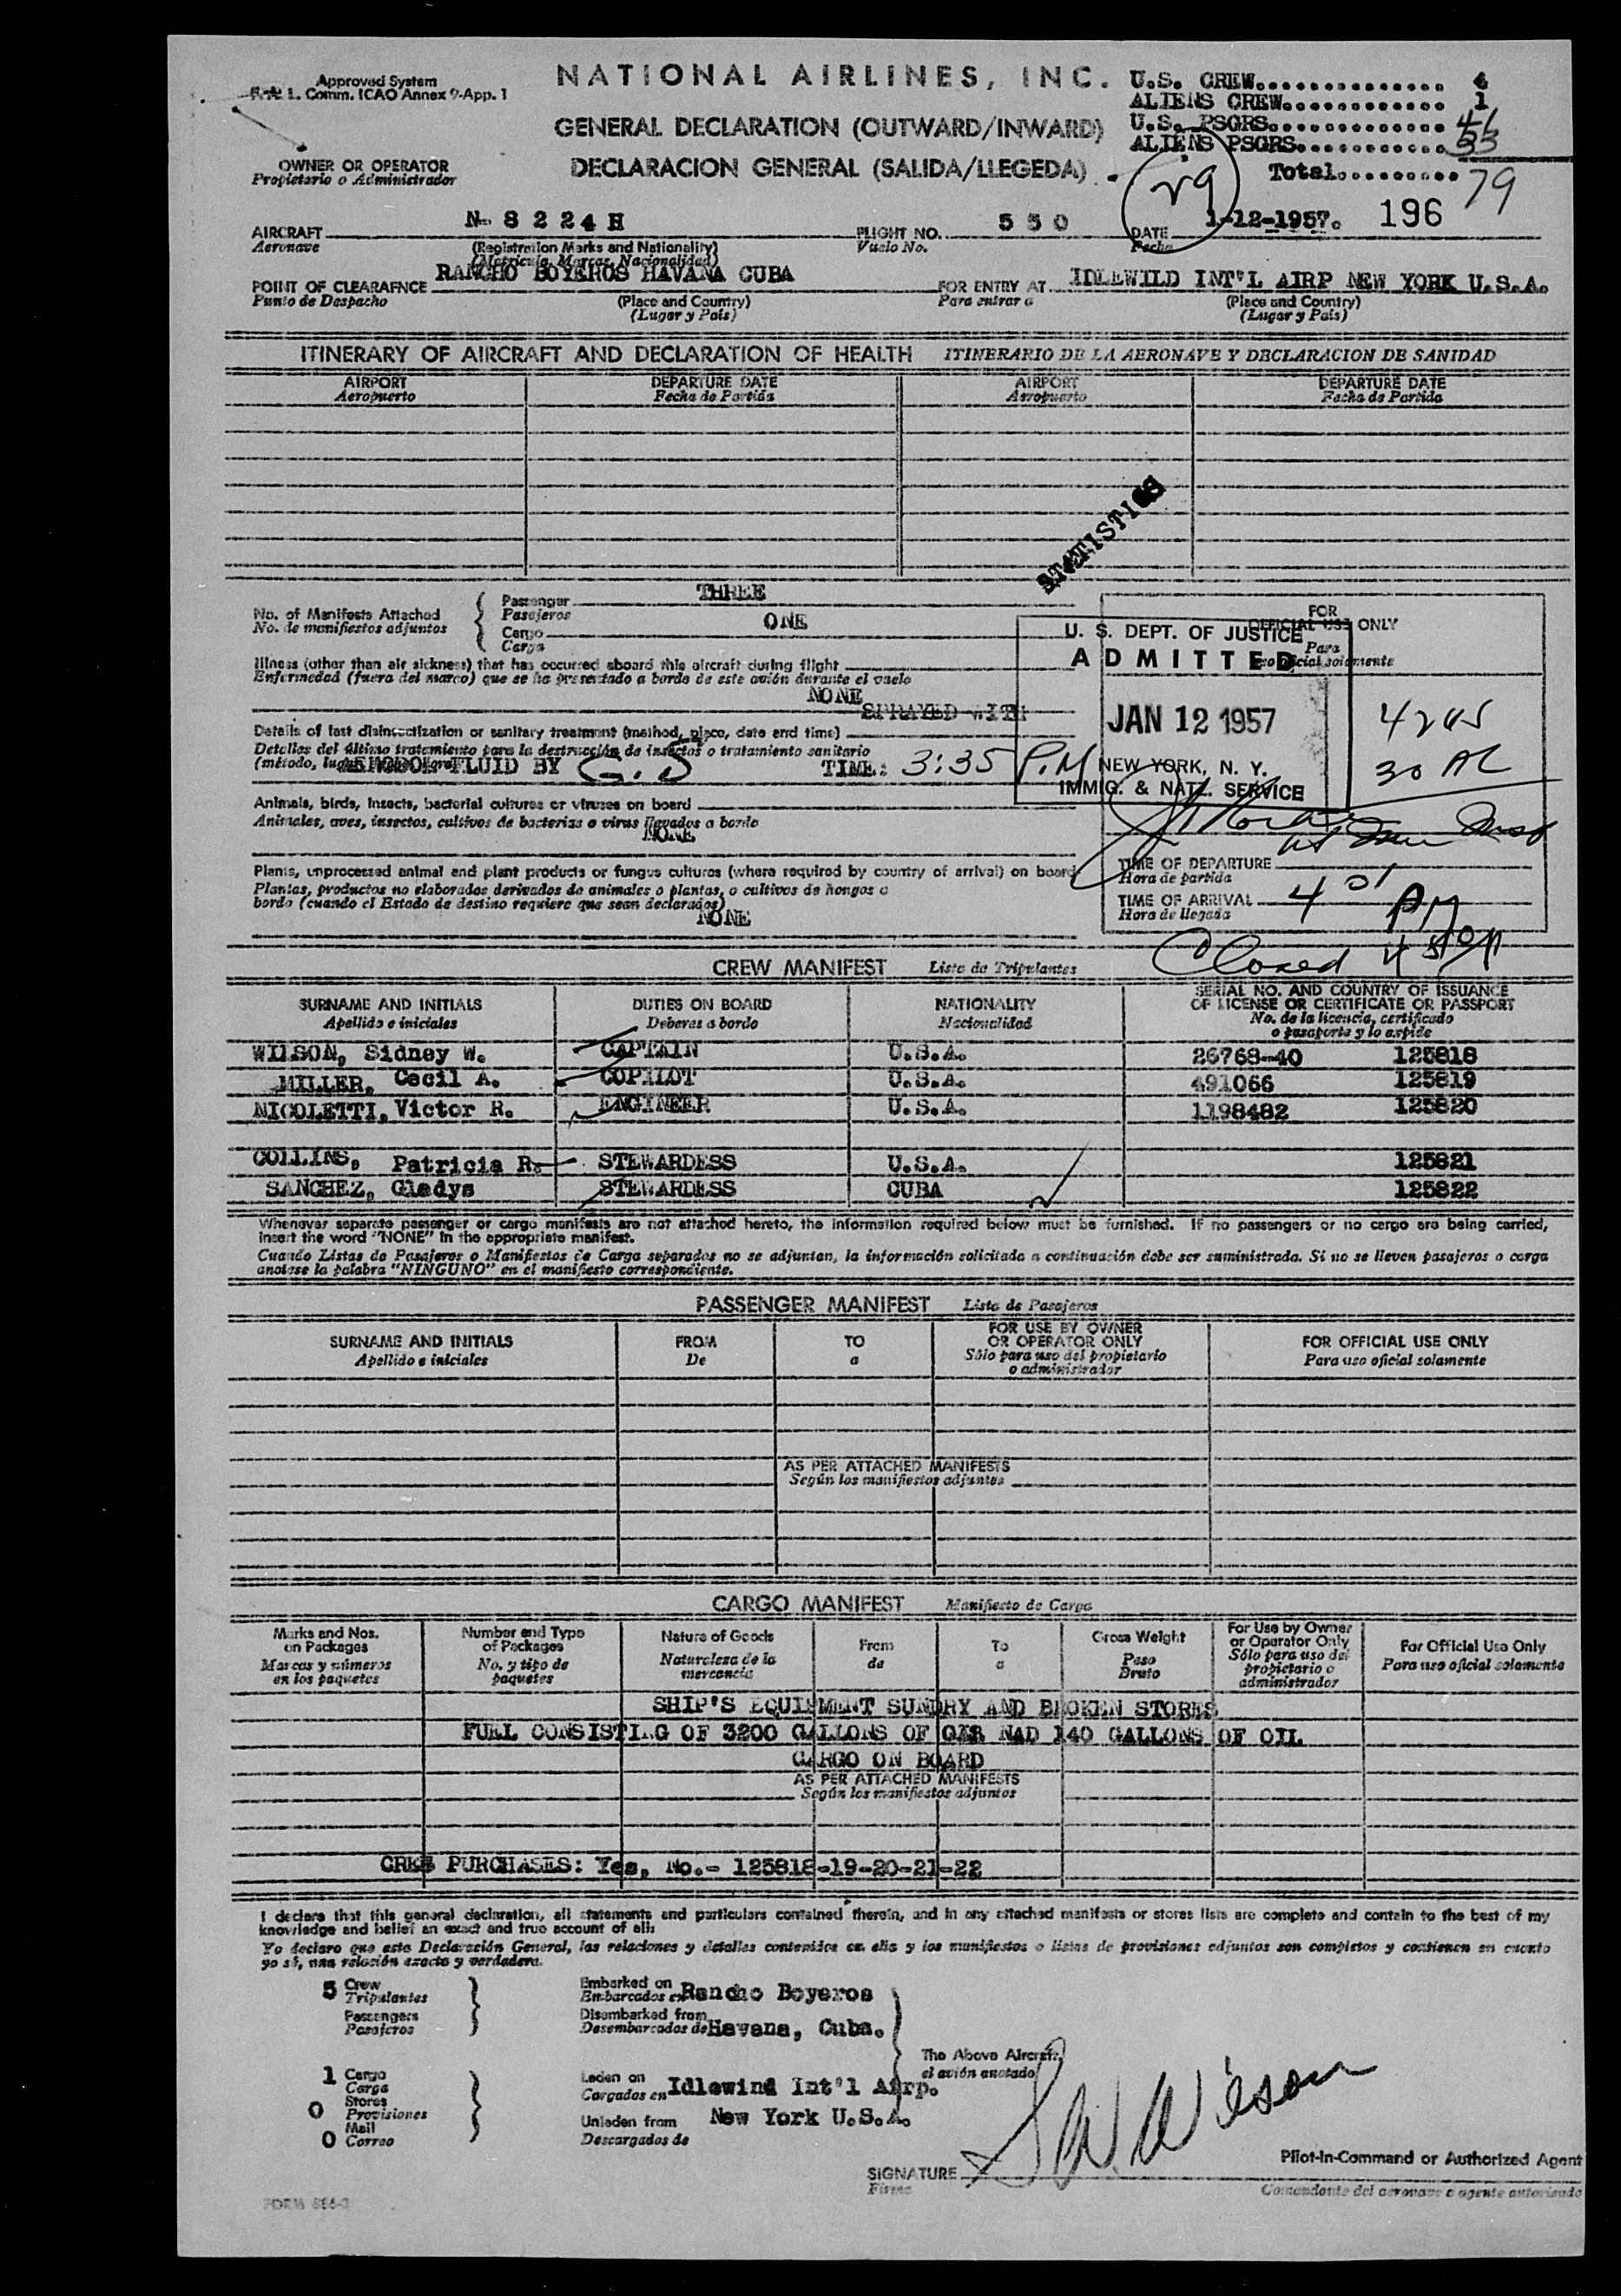 Approved System
Comm. ICAO Annex 9-App. 1
NATIONAL AIRLINES, INC.
GENERAL DECLARATION (OUTWARD/INWARD)
DECLARACION GENERAL (SALIDA/LLEGEDA)
U.S. CREW.............. 4
ALIENS CREW............ 1
U.S. PSGRS............. 41
ALIENS PSGRS........... 33
Total......... 79
29
196
OWNER OR OPERATOR
Propietario o Administrador
AIRCRAFT N- 8 2 2 4 H FLIGHT NO. 5 5 0 DATE 1-12-1957.
Aeronave (Registration Marks and Nationality) Vuelo No. Fecha
(Matricula, Marcas, Nacionalidad)
POINT OF CLEARAFNCE RANCHO BOYEROS HAVANA CUBA FOR ENTRY AT IDLEWILD INT'L AIRP NEW YORK U.S.A.
Punto de Despacho (Place and Country) Para entrar a (Place and Country)
(Lugar y País) (Lugar y País)
ITINERARY OF AIRCRAFT AND DECLARATION OF HEALTH ITINERARIO DE LA AERONAVE Y DECLARACION DE SANIDAD
AIRPORT DEPARTURE DATE AIRPORT DEPARTURE DATE
Aeropuerto Fecha de Partida Aeropuerto Fecha de Partida
STATISTICS
No. of Manifests Attached
No. de manifiestos adjuntos
Passenger THREE
Pasajeros
Cargo ONE
Carga
Illness (other than air sickness) that has occurred aboard this aircraft during flight
Enfermedad (fuera del mareo) que se ha presentado a bordo de este avión durante el vuelo
NONE
SPRAYED WITH
Details of last disinsectization or sanitary treatment (method, place, date and time)
Detalles del último tratamiento para la destrucción de insectos o tratamiento sanitario
FLUID BY G. D TIME: 3:35 P.M
Animals, birds, insects, bacterial cultures or viruses on board
Animales, aves, insectos, cultivos de bacterias o virus llevados a bordo
NONE
Plants, unprocessed animal and plant products or fungus cultures (where required by country of arrival) on board
Plantas, productos no elaborados derivados de animales o plantas, o cultivos de hongos a
bordo (cuando el Estado de destino requiere que sean declarados)
NONE
FOR
OFFICIAL USE ONLY
Para
uso oficial solamente
U. S. DEPT. OF JUSTICE
ADMITTED
JAN 12 1957
NEW YORK, N. Y.
IMMIG. & NATZ. SERVICE
30 AL
TIME OF DEPARTURE
Hora de partida
TIME OF ARRIVAL 4 01 PM
Hora de llegada
Closed
CREW MANIFEST Lista de Tripulantes
SURNAME AND INITIALS DUTIES ON BOARD NATIONALITY SERIAL NO. AND COUNTRY OF ISSUANCE
OF LICENSE OR CERTIFICATE OR PASSPORT
Apellido e iniciales Deberes a bordo Nacionalidad No. de la licencia, certificado
o pasaporte y lo expide
WILSON, Sidney W. CAPTAIN U.S.A. 26768-40 125818
MILLER, Cecil A. COPILOT U.S.A. 491066 125819
NICOLETTI, Victor R. ENGINEER U.S.A. 1198482 125820
COLLINS, Patricia R. STEWARDESS U.S.A. 125821
SANCHEZ, Gladys STEWARDESS CUBA 125822
Whenever separate passenger or cargo manifests are not attached hereto, the information required below must be furnished. If no passengers or no cargo are being carried,
insert the word "NONE" in the appropriate manifest.
Cuando Listas de Pasajeros o Manifiestos de Carga separados no se adjuntan, la información solicitada a continuación debe ser suministrada. Si no se lleven pasajeros o carga
anotese la palabra "NINGUNO" en el manifiesto correspondiente.
PASSENGER MANIFEST Lista de Pasajeros
SURNAME AND INITIALS FROM TO FOR USE BY OWNER
OR OPERATOR ONLY FOR OFFICIAL USE ONLY
Apellido e iniciales De a Sólo para uso del propietario
o administrador Para uso oficial solamente
AS PER ATTACHED MANIFESTS
Según los manifiestos adjuntos
CARGO MANIFEST Manifiesto de Carga
Marks and Nos.
on Packages
Marcas y números
en los paquetes
Number and Type
of Packages
No. y tipo de
paquetes
Nature of Goods
Naturaleza de la
mercancia
From
de
To
a
Gross Weight
Peso
Bruto
For Use by Owner
or Operator Only
Sólo para uso del
propietario o
administrador
For Official Use Only
Para uso oficial solamente
SHIP'S EQUIPMENT SUNDRY AND BROKEN STORES
FUEL CONSISTING OF 3200 GALLONS OF GAR NAD 140 GALLONS OF OIL
CARGO ON BOARD
AS PER ATTACHED MANIFESTS
Según los manifiestos adjuntos
CREW PURCHASES: Yes, No.- 125818-19-20-21-22
I declare that this general declaration, all statements and particulars contained therein, and in any attached manifests or stores lists are complete and contain to the best of my
knowledge and belief an exact and true account of all:
Yo declaro que esta Declaración General, las relaciones y detalles contenidos en ella y los manifiestos o listas de provisiones adjuntos son completos y contienen en cuanto
yo sé, una relación exacta y verdadera.
5 Crew
Tripulantes
Passengers
Pasajeros
Embarked on
Embarcados en Rancho Boyeros
Disembarked from
Desembarcados de Havana, Cuba.
The Above Aircraft
el avión anotado
1 Cargo
Carga
0 Stores
Provisiones
0 Mail
Correo
Laden on
Cargados en Idlewind Int'l Airp.
Unladen from New York U.S.A.
Descargados de
SIGNATURE S W Wilson
Firma
Pilot-in-Command or Authorized Agent
Comandante del aeronave o agente autorizado
FORM 886-2